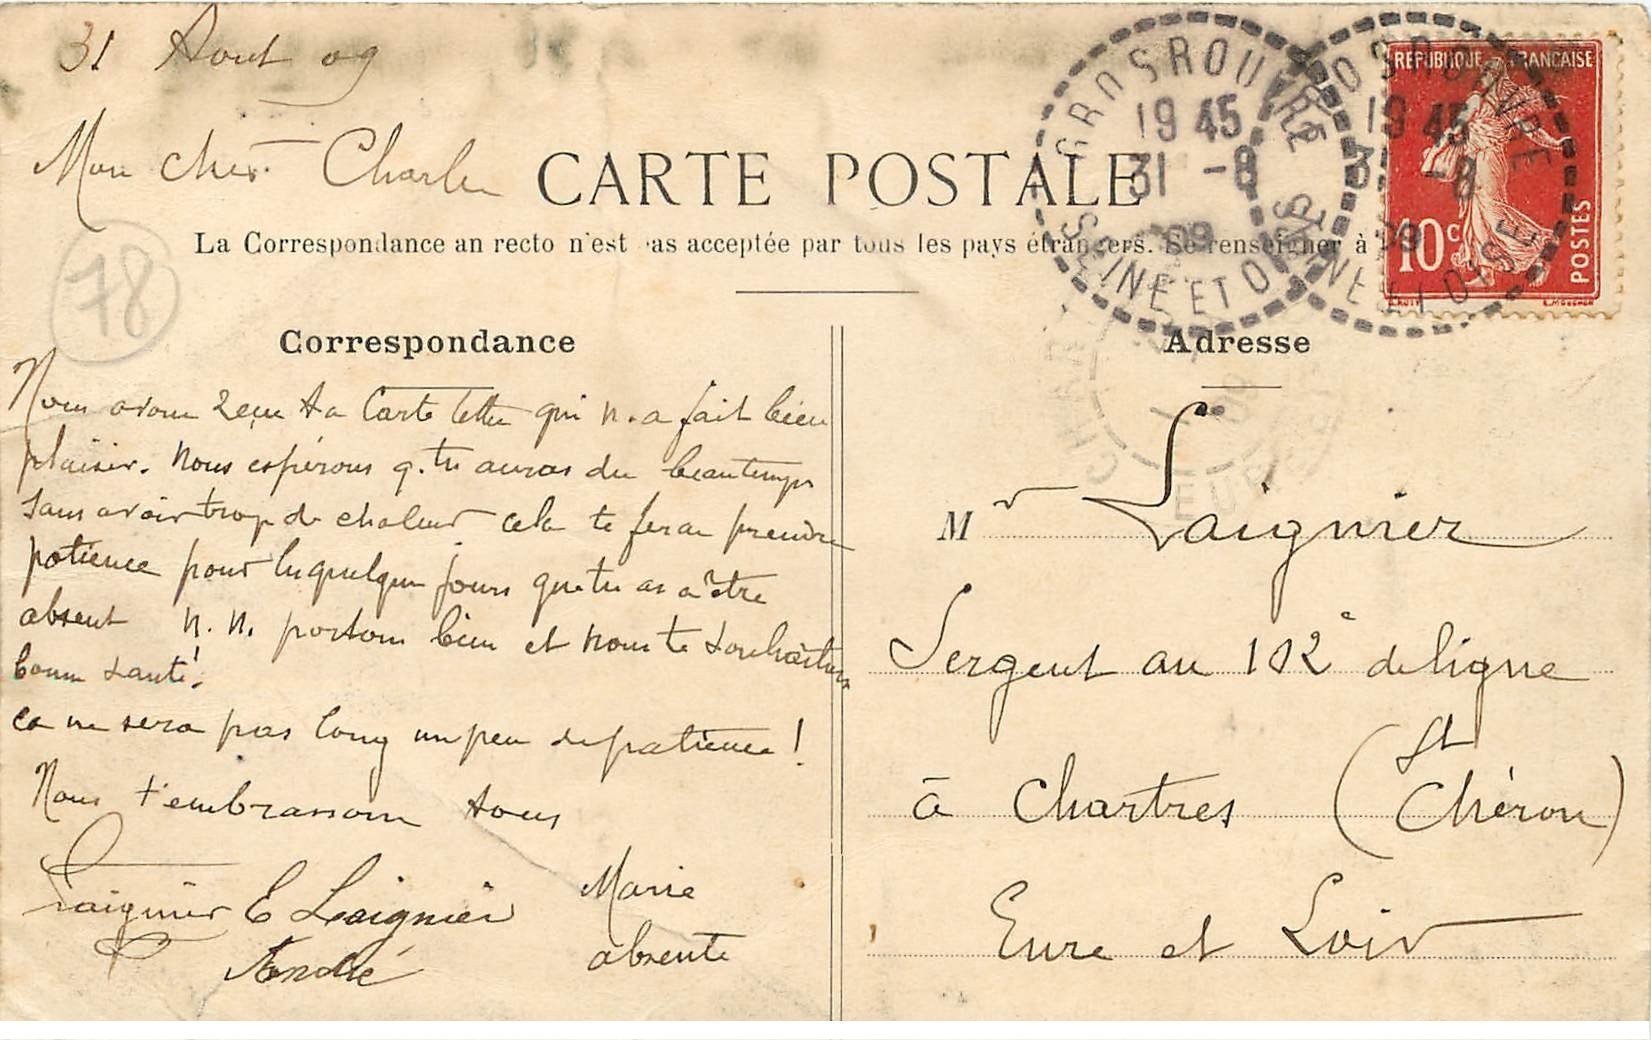 31 Aout 09
Mon cher Charles
CARTE POSTALE
La Correspondance au recto n'est pas acceptée par tous les pays étrangers. Se renseigner à
78
GROSROUVRE
19 45
31 -8
09
SEINE ET OISE
GROSROUVRE
19 45
31 -8
09
SEINE ET OISE
REPUBLIQUE FRANÇAISE
10c
POSTES
Correspondance
Nous avons reçu ta Carte lettre qui n. a fait bien
plaisir. Nous espérons q. tu auras du beau temps
sans avoir trop de chaleur cela te fera prendre
patience pour les quelques jours que tu as à être
absent N. N. portons bien et nous te souhaitons
bonne santé!
ça ne sera pas long un peu de patience!
Nous t'embrassons tous
Laignier E Laignier Marie
André absente
Adresse
Mr Laignier
Sergent au 102e de ligne
à Chartres (St Chéron)
Eure et Loir